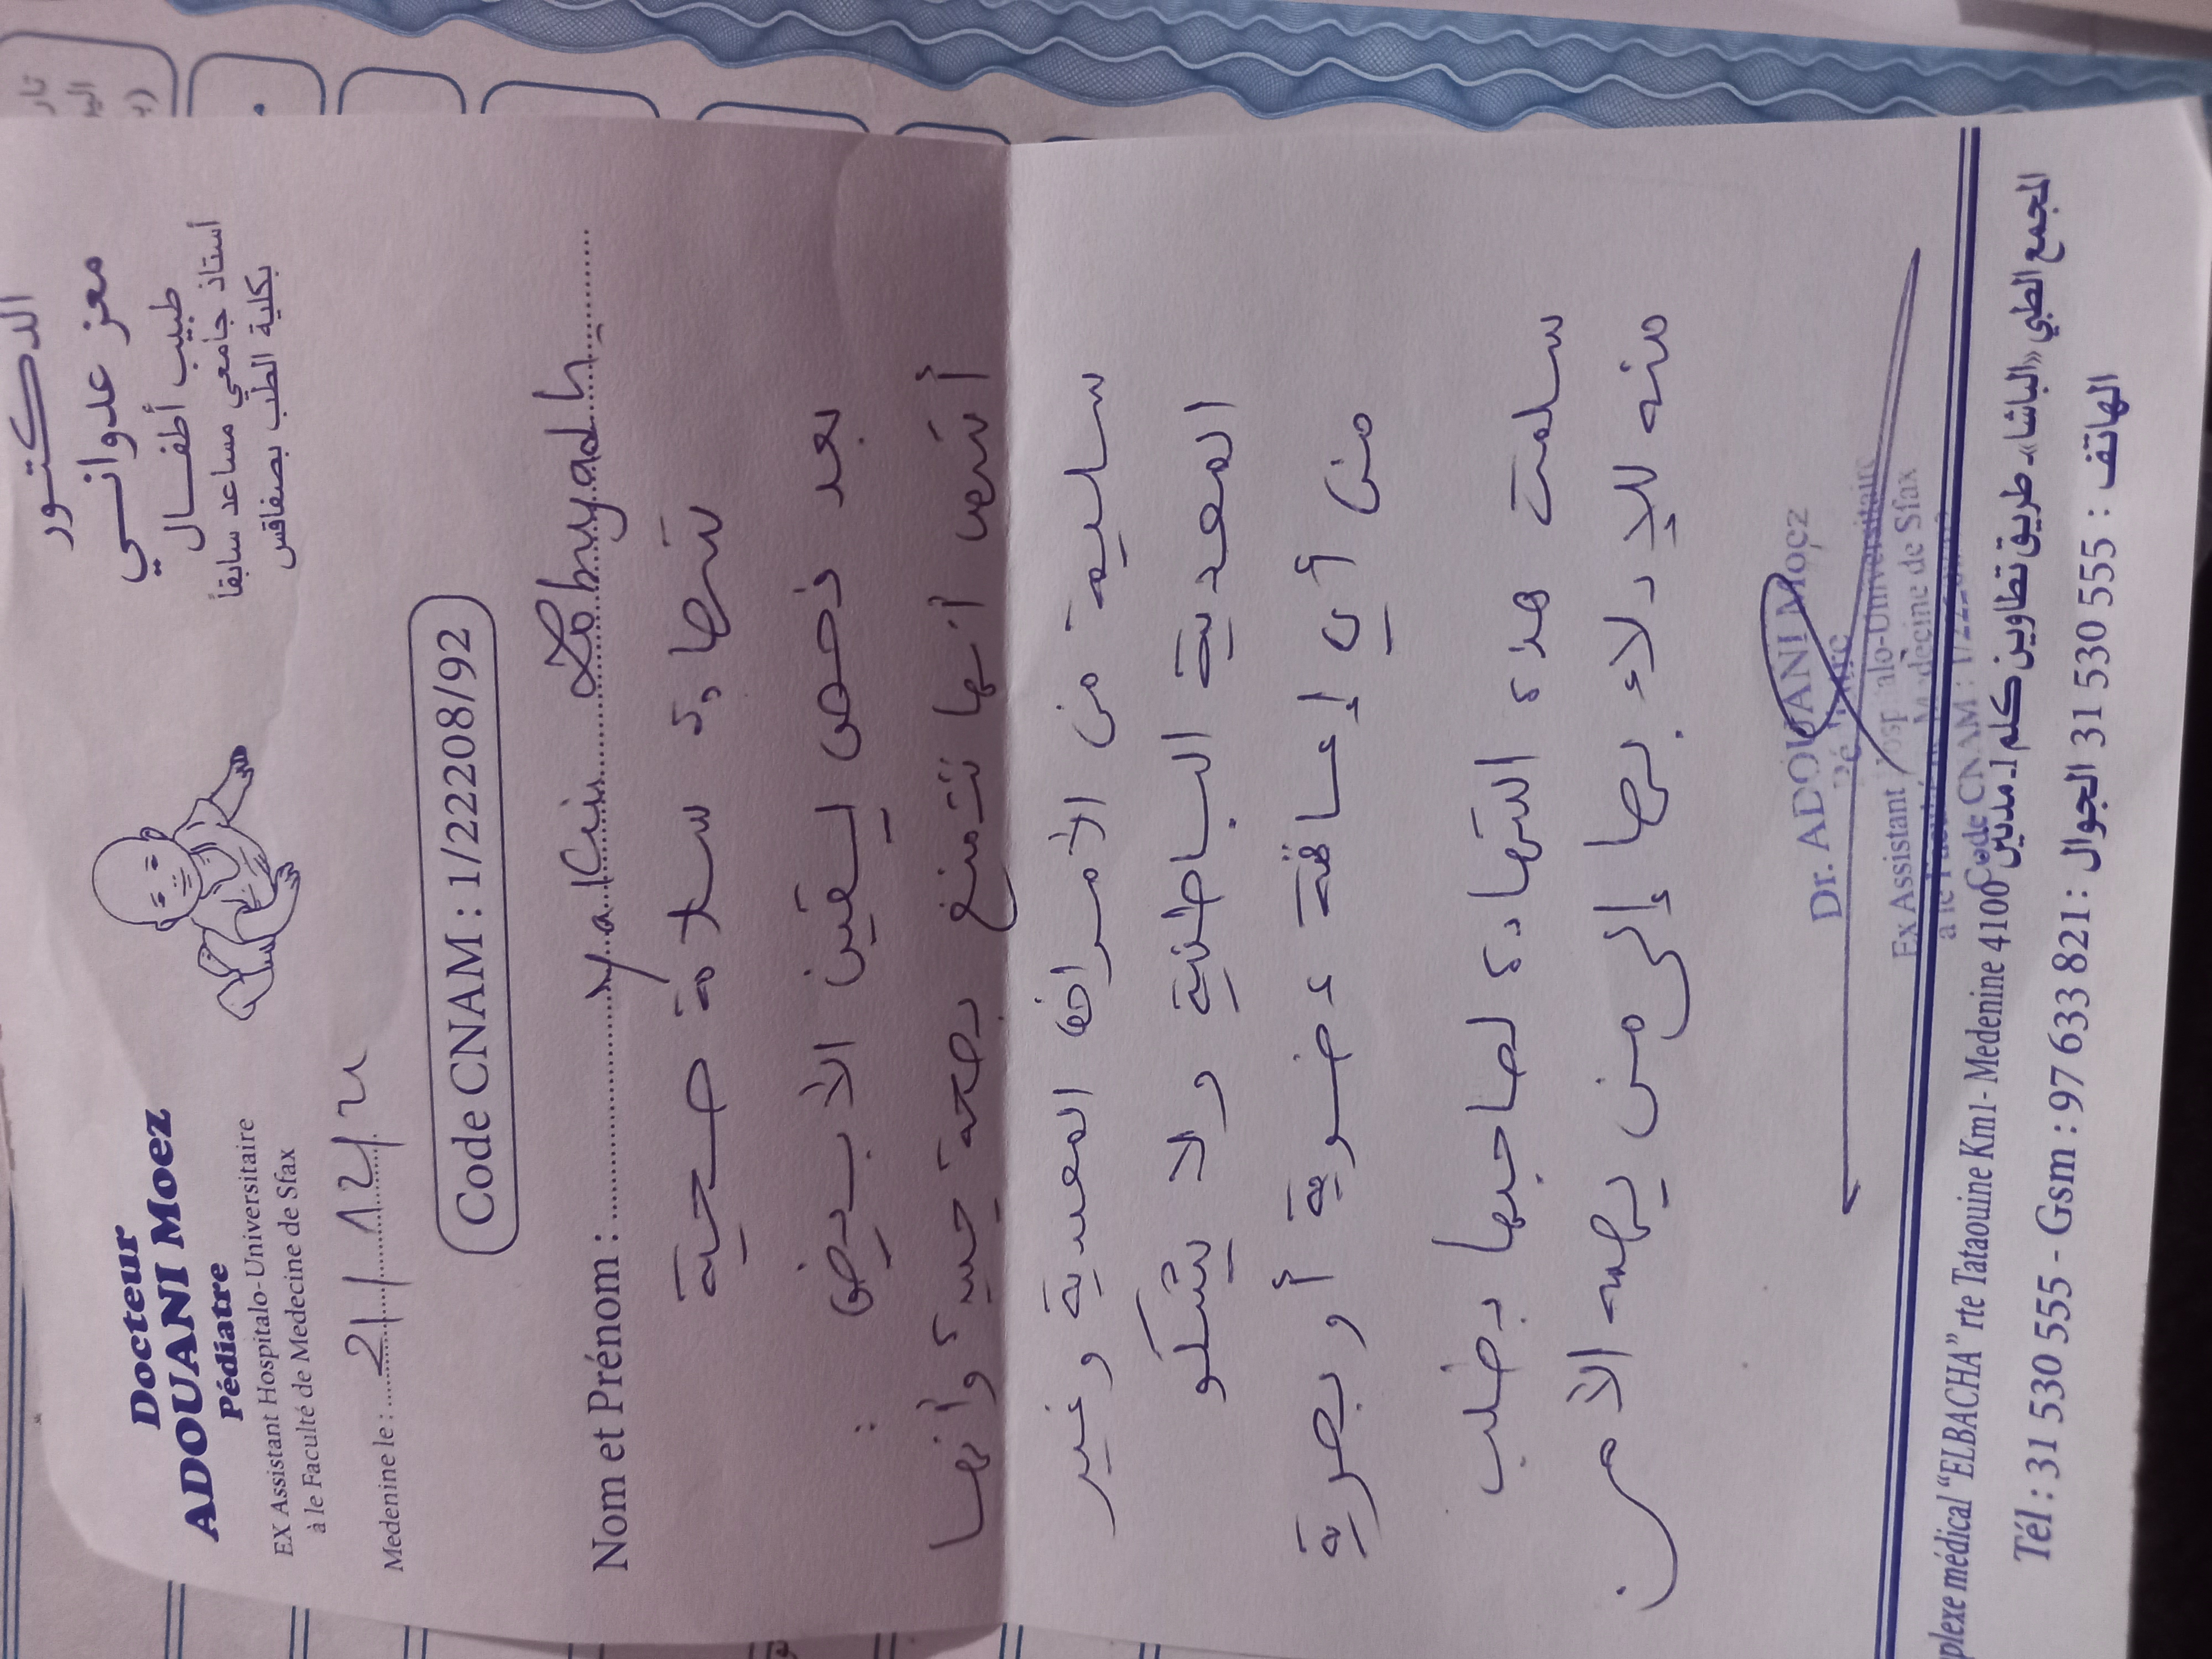 Docteur
ADOUANI Moez
Pédiatre
EX Assistant Hospitalo-Universitaire
à le Faculté de Medecine de Sfax
الدكتور
معز عدواني
طبيب أطفال
أستاذ جامعي مساعد سابقا
بكلية الطب بصفاقس
Medenine le :
Code CNAM : 1/22208/92
Nom et Prénom : Yakin Labyadh
شهادة سلامة صحية
بعد فحص ليقين الأبيض :
أشهد أنها تتمتع بصحة جيدة وأنها
سليمة من الأمراض المعدية وغير
المعدية الباطنية ولا يشكو
من أي إعاقة عضوية أو بصرية
سلمت هذه الشهادة لصاحبها بطلب
منه للإدلاء بها إلى من يهمه الأمر
Dr. ADOUANI Moez
Ex Assistant Hospitalo-Universitaire
Médecine de Sfax
Code CNAM :
plexe médical "ELBACHA" rte Tataouine Km1- Medenine 4100 المجمع الطبي «الباشا» طريق تطاوين كلم 1 ـ مدنين
Tél : 31 530 555 - Gsm : 97 633 821 : الهاتف : 31 530 555 الجوال